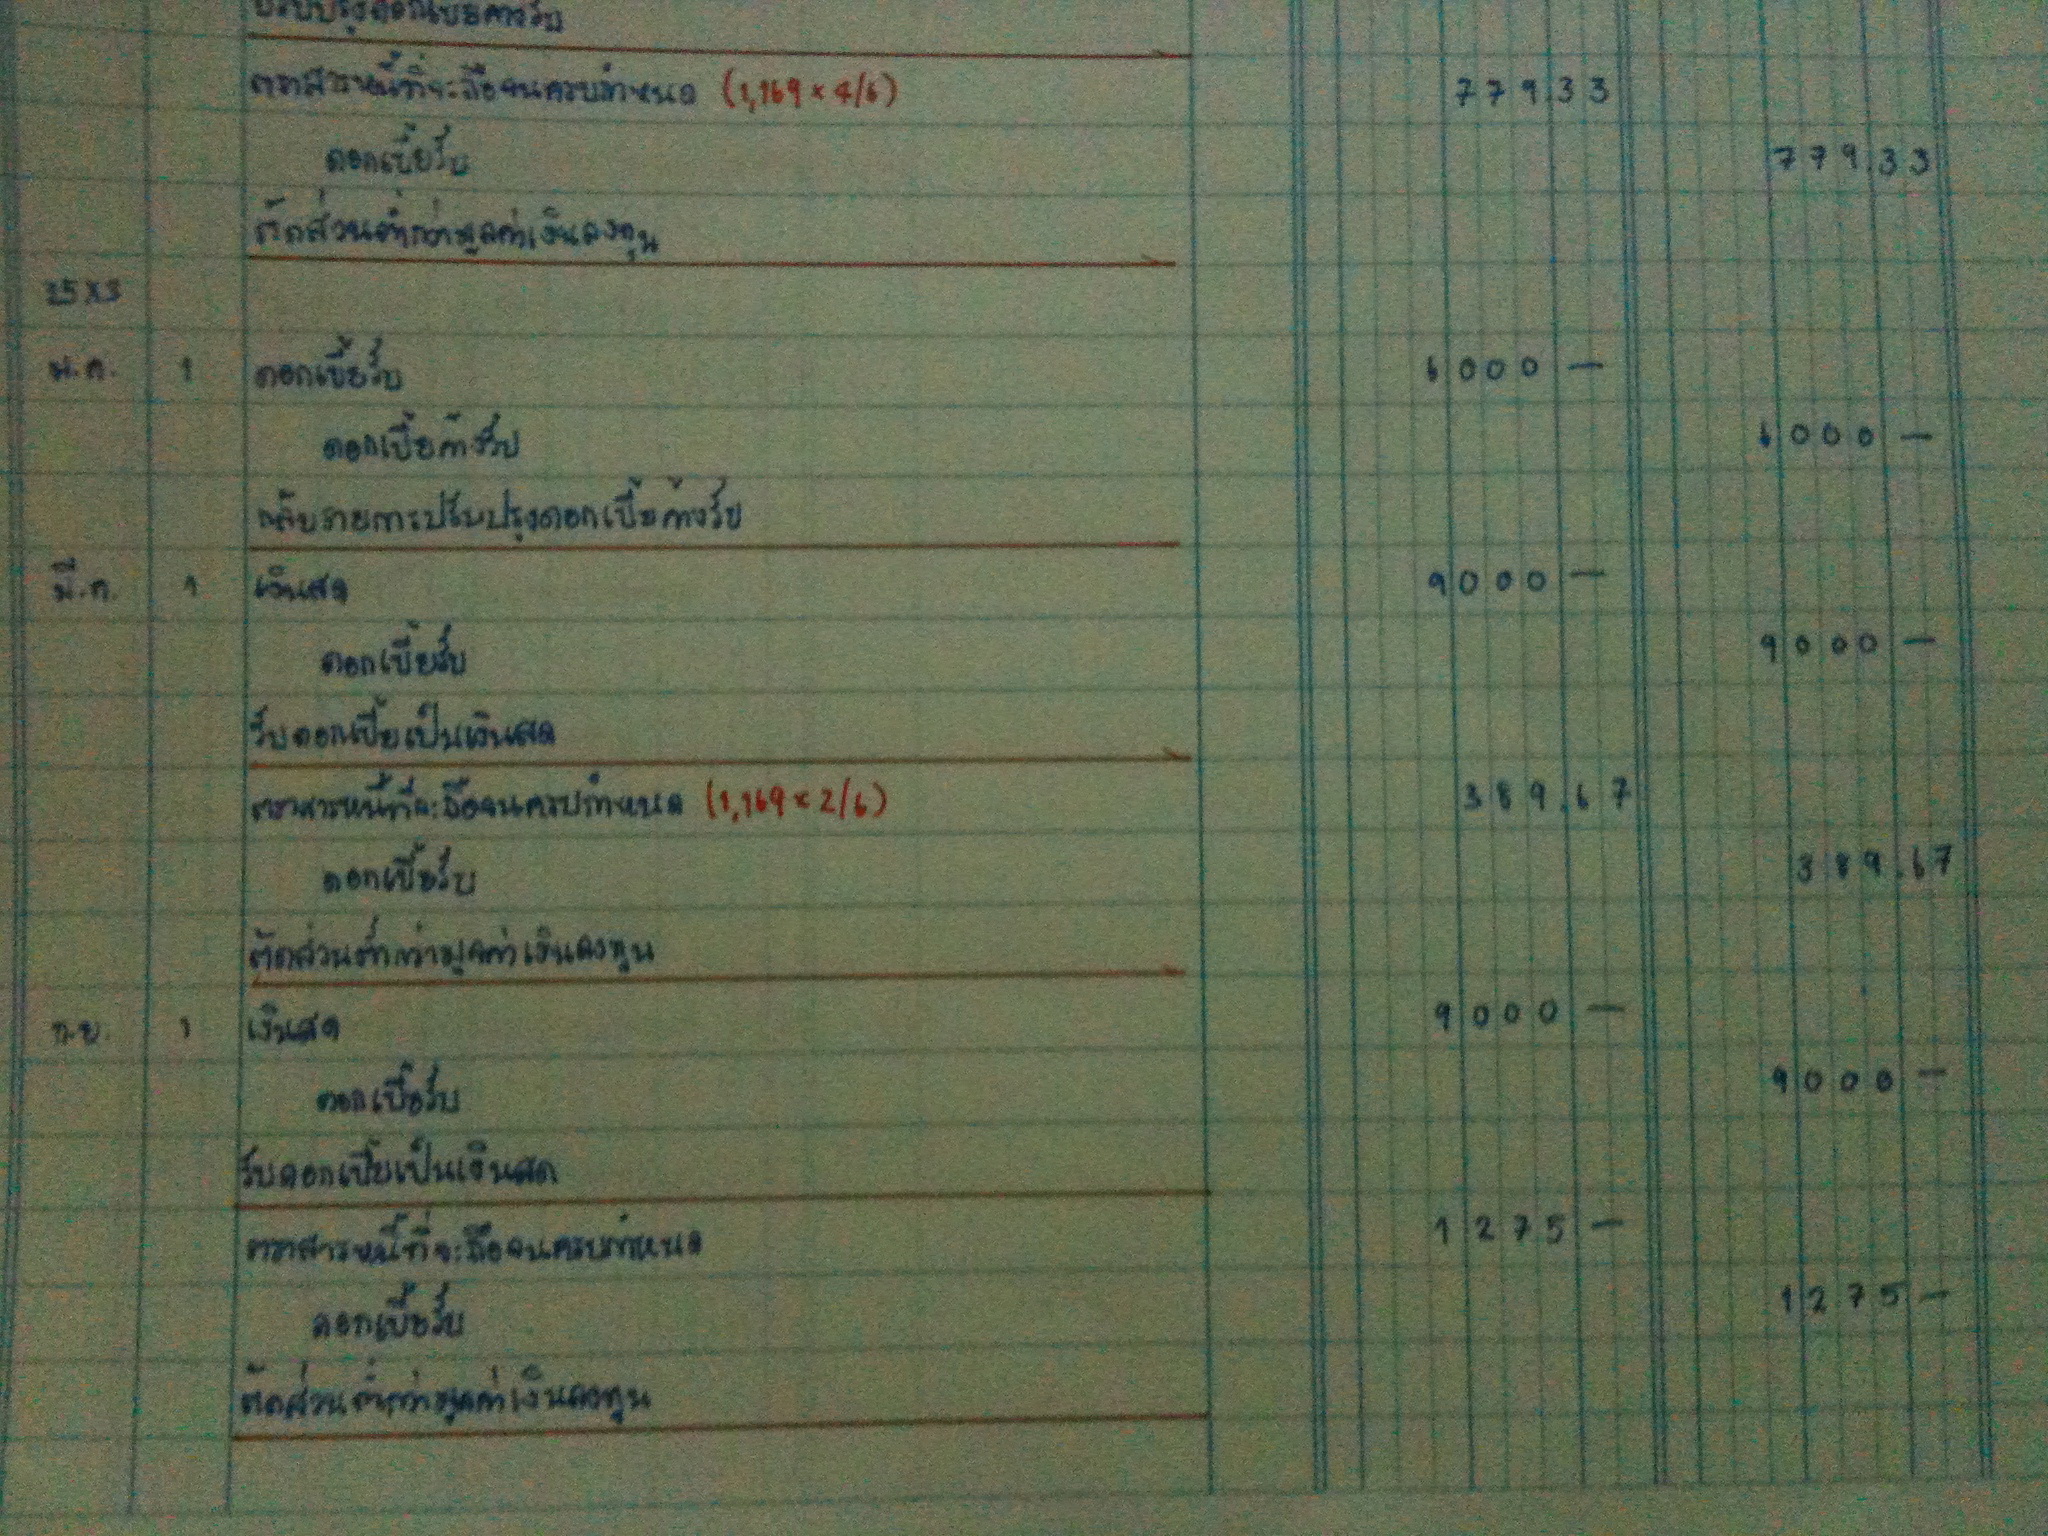 ปรับปรุงดอกเบี้ยค้างรับ
ตราสารหนี้ที่จะถือจนครบกำหนด (1,169 × 4/6) 779.33
ดอกเบี้ยรับ 779.33
ตัดส่วนต่ำกว่ามูลค่าเงินลงทุน
25X3
ม.ค. 1 ดอกเบี้ยรับ 6000 —
ดอกเบี้ยค้างรับ 6000 —
กลับรายการปรับปรุงดอกเบี้ยค้างรับ
มี.ค. 1 เงินสด 9000 —
ดอกเบี้ยรับ 9000 —
รับดอกเบี้ยเป็นเงินสด
ตราสารหนี้ที่จะถือจนครบกำหนด (1,169 × 2/6) 389.67
ดอกเบี้ยรับ 389.67
ตัดส่วนต่ำกว่ามูลค่าเงินลงทุน
ก.ย. 1 เงินสด 9000 —
ดอกเบี้ยรับ 9000 —
รับดอกเบี้ยเป็นเงินสด
ตราสารหนี้ที่จะถือจนครบกำหนด 1275 —
ดอกเบี้ยรับ 1275 —
ตัดส่วนต่ำกว่ามูลค่าเงินลงทุน